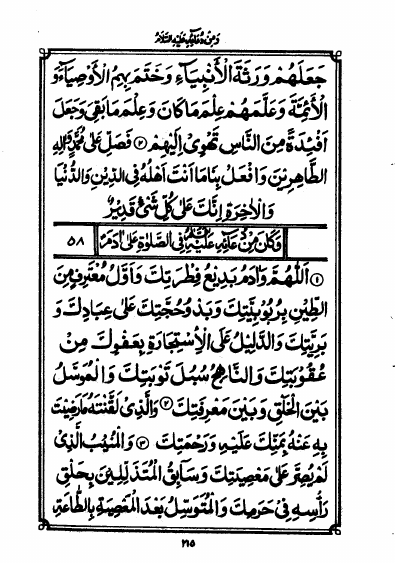 وَمِنْ دُعَائِهِ عَلَيْهِ السَّلَامُ
جَعَلَهُمْ وَرَثَةَ الْأَنْبِيَاءِ وَخَتَمَ بِهِمُ الْأَوْصِيَاءَ وَ
الْأَئِمَّةَ وَعَلَّمَهُمْ عِلْمَ مَا كَانَ وَعِلْمَ مَا بَقِيَ وَجَعَلَ
اَفْئِدَةً مِنَ النَّاسِ تَهْوِىْ اِلَيْهِمْ ۝۳ فَصَلِّ عَلٰى مُحَمَّدٍ وَّاٰلِهِ
الطَّاهِرِيْنَ وَافْعَلْ بِنَا مَا اَنْتَ اَهْلُهُ فِى الدِّيْنِ وَالدُّنْيَا
وَالْاٰخِرَةِ اِنَّكَ عَلٰى كُلِّ شَىْءٍ قَدِيْرٌ
وَكَانَ مِنْ دُعَائِهِ عَلَيْهِ السَّلَامُ فِى الصَّلٰوةِ عَلٰى اٰدَمَ ۵۸
۝۱ اَللّٰهُمَّ وَاٰدَمُ بَدِيْعُ فِطْرَتِكَ وَاَوَّلُ مُعْتَرِفٍ مِنَ
الطِّيْنِ بِرُبُوْبِيَّتِكَ وَبَدْوُ حُجَّتِكَ عَلٰى عِبَادِكَ وَ
بَرِيَّتِكَ وَالدَّلِيْلُ عَلَى الْاِسْتِجَارَةِ بِعَفْوِكَ مِنْ
عُقُوْبَتِكَ وَالنَّاهِجُ سُبُلَ تَوْبَتِكَ وَالْمُوَسَّلُ
بَيْنَ الْخَلْقِ وَبَيْنَ مَعْرِفَتِكَ ۝۲ وَالَّذِىْ لَقَّنْتَهُ مَا رَضِيْتَ
بِهِ عَنْهُ بِمَنِّكَ عَلَيْهِ وَرَحْمَتِكَ ۝۳ وَالْمُنِيْبُ الَّذِىْ
لَمْ يُصِرَّ عَلٰى مَعْصِيَتِكَ وَسَابِقُ الْمُتَذَلِّلِيْنَ بِحَلْقِ
رَأْسِهِ فِىْ حَرَمِكَ وَالْمُتَوَسِّلُ بَعْدَ الْمَعْصِيَةِ بِالطَّاعَةِ
۲۱۵